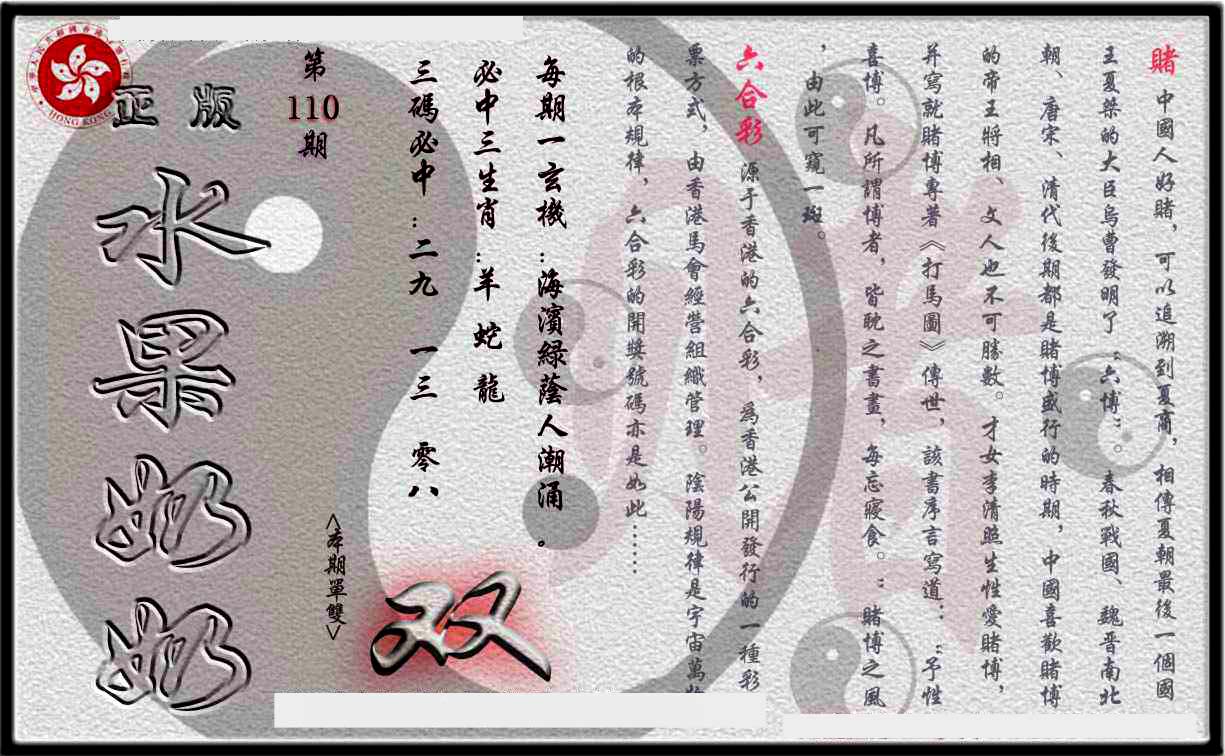 賭 中國人好賭，可以追溯到夏商，相傳夏朝最後一個國
王夏桀的大臣烏曹發明了“六博”。春秋戰國、魏晋南北
朝、唐宋、清代後期都是賭博盛行的時期，中國喜歡賭博
的帝王將相、文人也不可勝數。才女李清照生性愛賭博，
并寫就賭博專著《打馬圖》傳世，該書序言寫道：“予性
喜博。凡所謂博者，皆耽之書畫，每忘寢食。：賭博之風
，由此可窺一斑。
六合彩 源于香港的六合彩，為香港公開發行的一種彩
票方式，由香港馬會經營組織管理。陰陽規律是宇宙萬物
的根本規律，六合彩的開獎號碼亦是如此……
每期一玄機：海濱綠蔭人潮涌。
必中三生肖：羊 蛇 龍
三碼必中：二九 一三 零八
第110期
<本期單雙>
双
正版
水果奶奶
HONG KONG